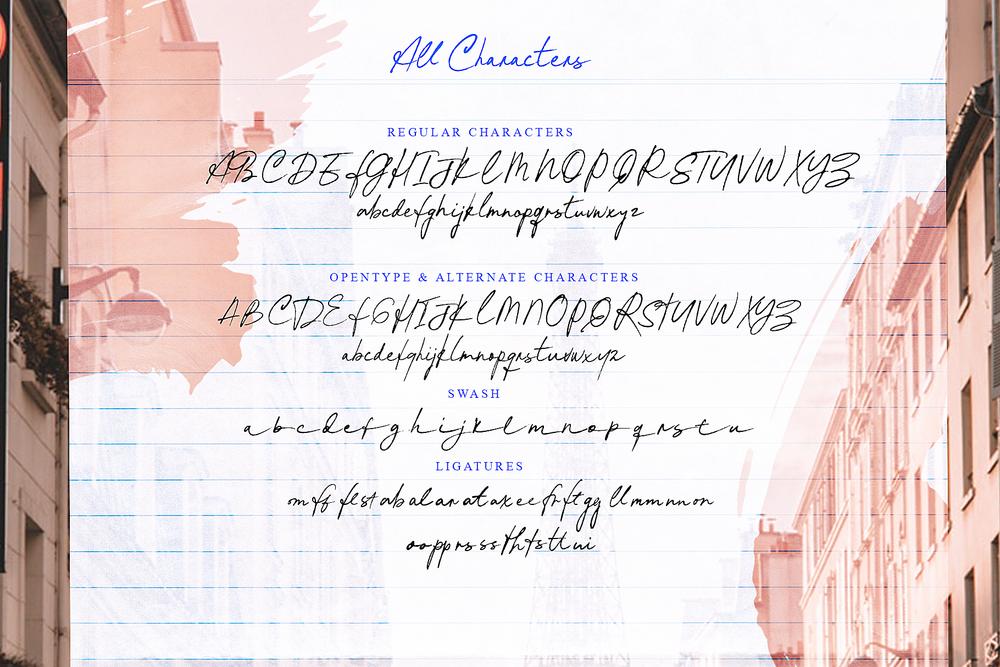 All Characters
REGULAR CHARACTERS
ABCDEfGHIJKLMNOPQRSTUVWXYZ
abcdefghijklmnopqrstuvwxyz
OPENTYPE & ALTERNATE CHARACTERS
ABCDEfGHIJKLMNOPQRSTUVWXYZ
abcdefghijklmnopqrstuvwxyz
SWASH
a b c d e f g h i j k l m n o p q r s t u
LIGATURES
om ff fl st ab al an at ax ee fr ft gg ll mm nn on
oo pp rs ss Th ts tt ui